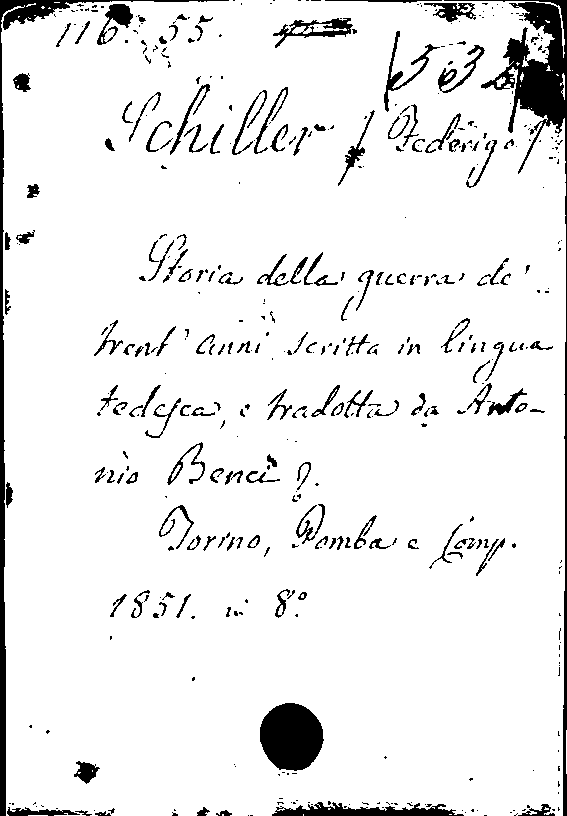 116. 55.
Schiller / Federigo /
Storia della guerra de'
trent' anni scritta in lingua
tedesca, e tradotta da Anto-
nio Benci
Torino, Pomba e Comp.
1851. in 8º